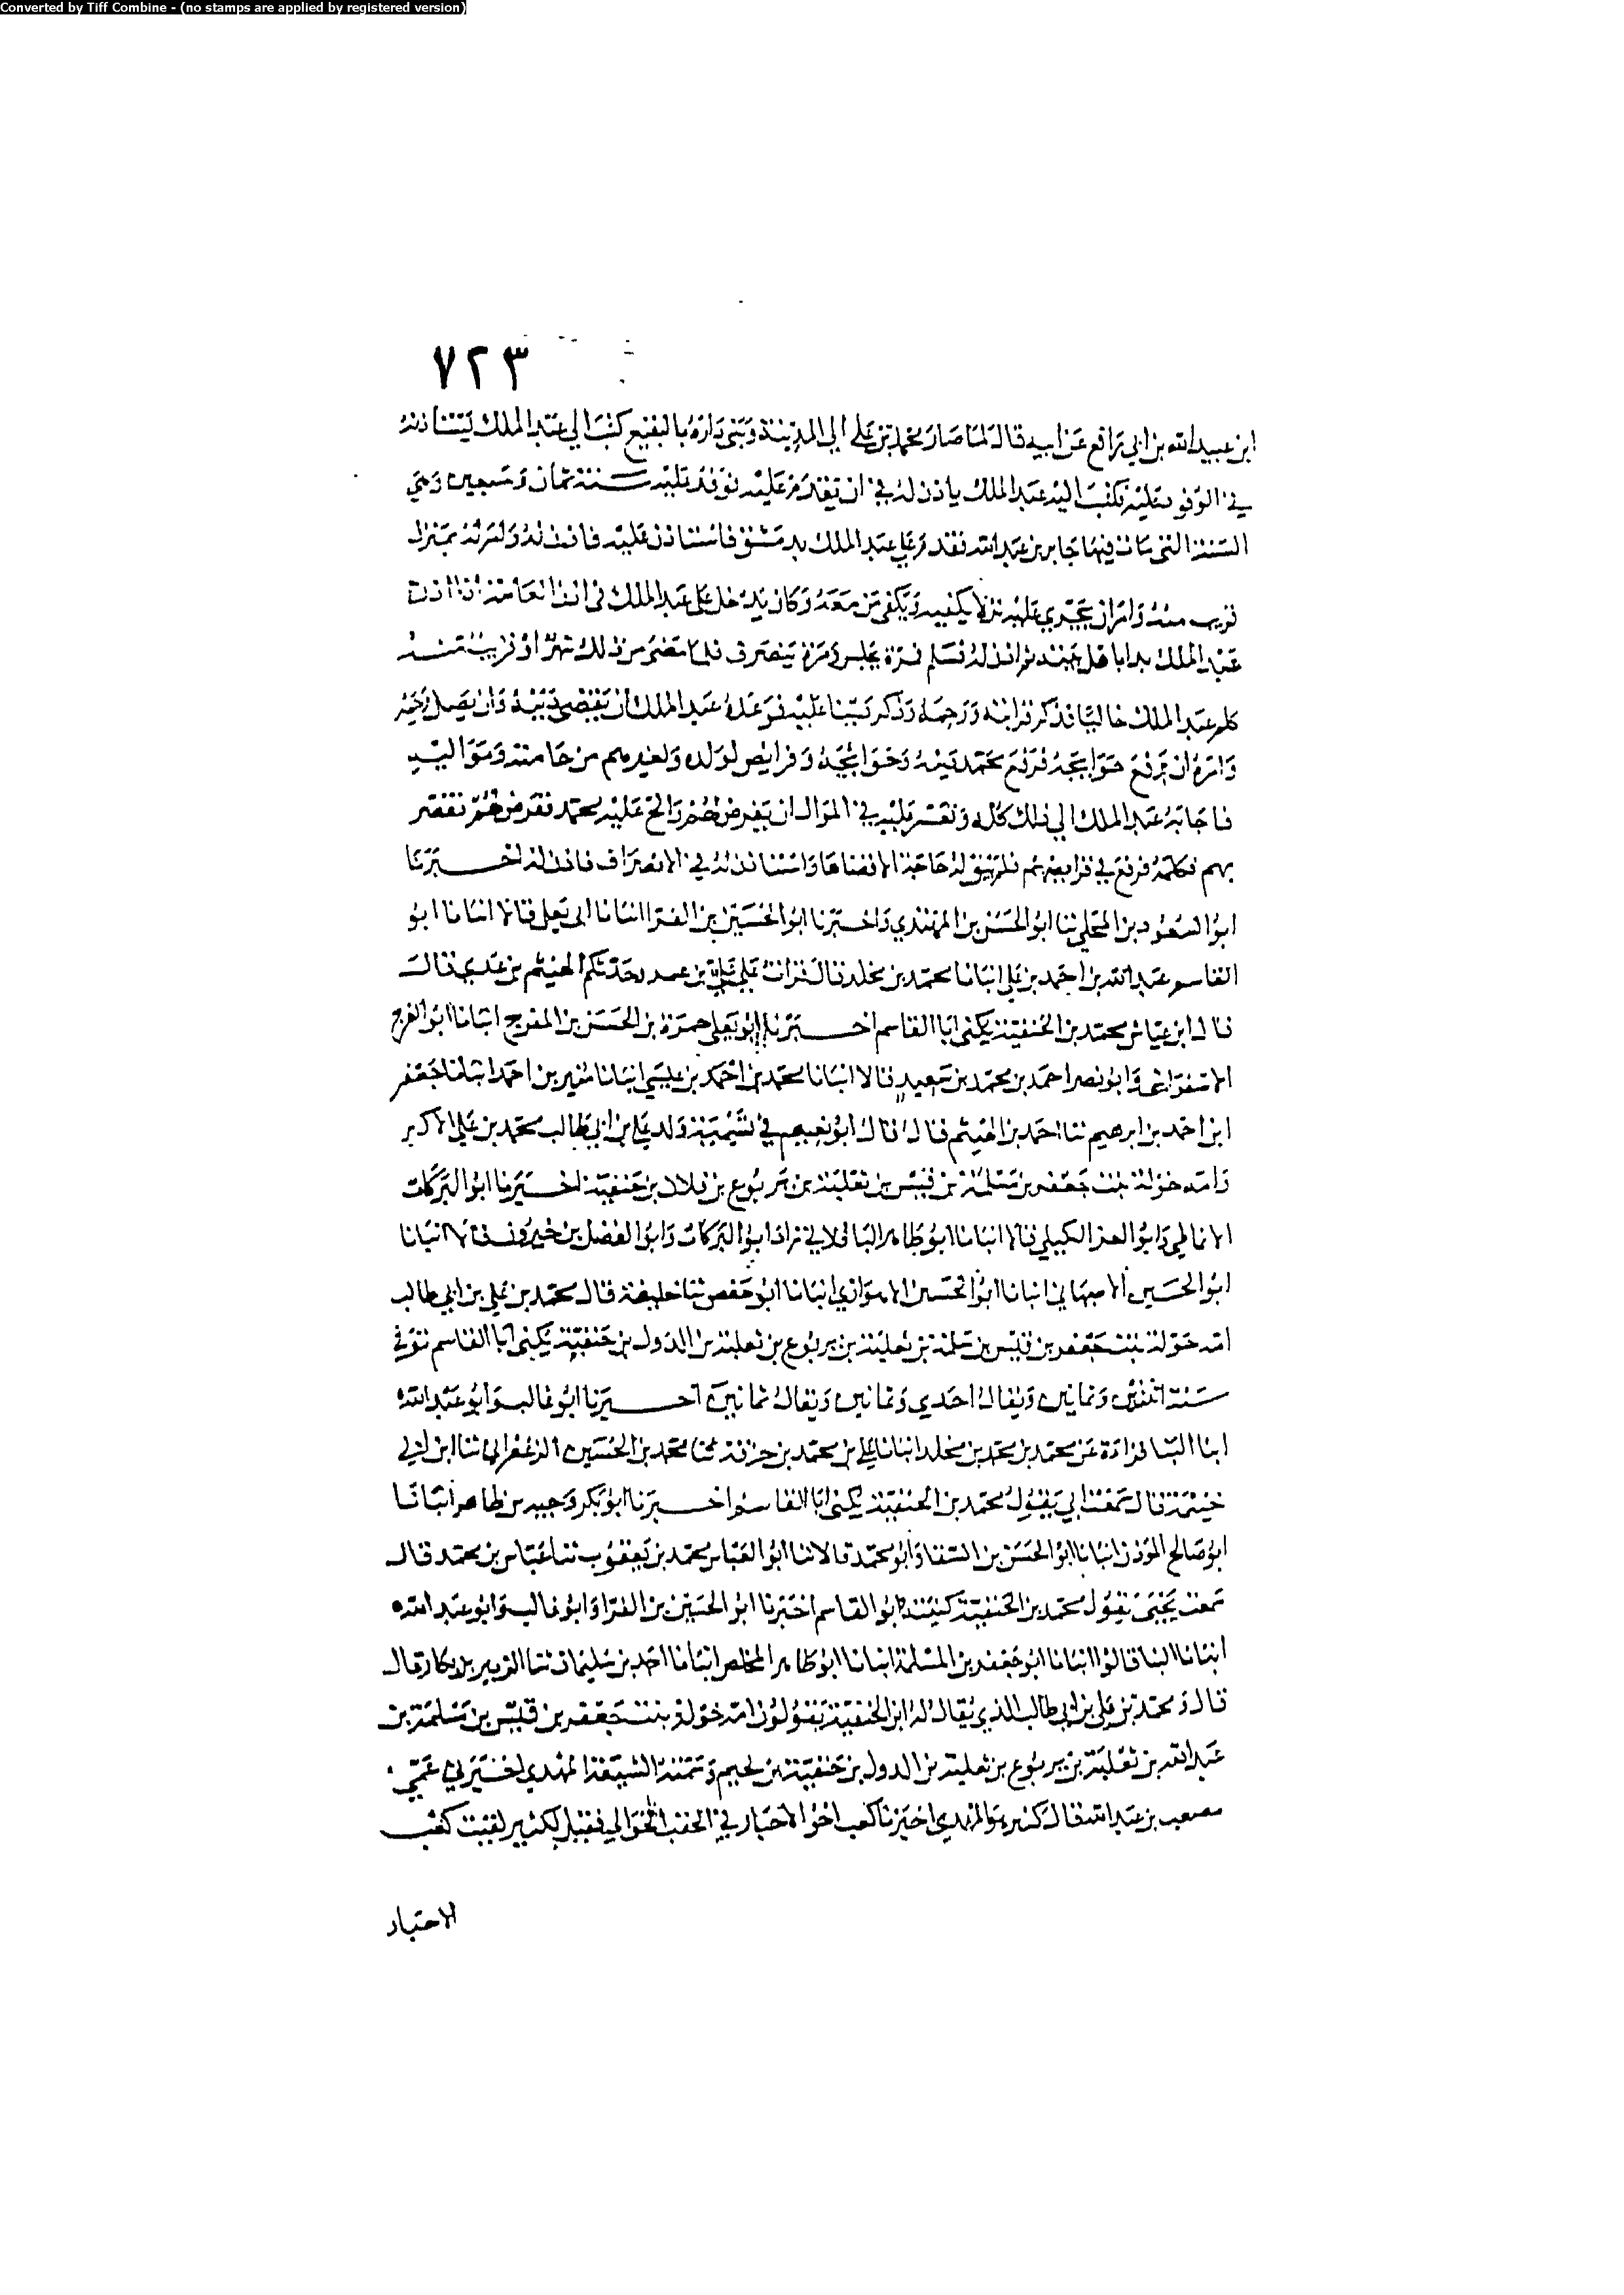 Converted by Tiff Combine - (no stamps are applied by registered version)
٧٢٣
ابن عبيد الله بن ابي رافع عن ابيه قال لما صار محمد بن علي الي المدينة وبنى داره بالبقيع كتب الي عبد الملك يستاذنه
في الوفود عليه فكتب اليه عبد الملك ياذن له في ان يقدم عليه فوفد عليه سنة ثمان وسبعين وهي
السنة التي مات فيها جابر بن عبد الله فقدم على عبد الملك بدمشق فاستاذن عليه فاذن له وامر له بمنزل
قريب منه وامر ان يجري عليه نزلا يكفيه ويكفي من معه وكان يدخل على عبد الملك في اذن العامة اذا اذن
عبد الملك بدا باهل بيته ثم اذن له فسلم فمرة يجلس ومرة ينصرف فلما مضى من ذلك شهر او قريب منه
كلم عبد الملك خاليا فذكر قرابته ورحمه وذكر دينا عليه فوعده عبد الملك ان يقضي دينه وان يصل رحمه
وامره ان يرفع حوايجه فرفع محمد دينه وحوايجه وفرايض لولده ولغيرهم من حامته ومواليه
فاجابه عبد الملك الي ذلك كله وتعسر عليه في الموالي ان يفرض لهم والح عليه محمد ففرض لهم فقصر
بهم فكلمه فرفع في فرايضهم فلم يبق له حاجة الا قضاها واستاذنه في الانصراف فاذن له اخبرنا
ابو السعود بن المجلي ثنا ابو الحسن بن المهتدي واخبرنا ابو الحسين بن الفرا انبانا ابي يعلى قالا انبانا ابو
القاسم عبد الله بن احمد بن علي انبانا محمد بن مخلد قال قرات على علي بن عمرو حدثكم الهيثم بن عدي قال
قال ابن عياش محمد بن الحنفية يكنى ابا القاسم اخبرنا ابو يعلى حمزة بن الحسن بن المفرج انبانا ابو الفرج
الاسفرايني وابو نصر احمد بن محمد بن سعيد قالا انبانا محمد بن احمد بن عيسى انبانا منير بن احمد انبانا جعفر
ابن احمد بن ابرهيم ثنا احمد بن الهيثم قال قال ابو نعيم في تسمية ولد علي بن ابي طالب محمد بن علي الاكبر
وامه خولة بنت جعفر بن مسلمة بن قيس بن ثعلبة بن يربوع بن فلان بن حنفية اخبرنا ابو البركات
الانماطي وابو العز الكيلي قالا انبانا ابو طاهر الباقلاني زاد ابو البركات وابو الفضل بن خيرون قالا انبانا
ابو الحسين الاصبهاني انبانا ابو الحسين الاهوازي انبانا ابو حفص ثنا خليفة قال محمد بن علي بن ابي طالب
امه خولة بنت جعفر بن قيس بن سلمة بن ثعلبة بن يربوع بن ثعلبة بن الدول بن حنفية يكنى ابا القاسم توفي
سنة اثنتين وثمانين ويقال احدي وثمانين ويقال ثمانين اخبرنا ابو غالب وابو عبد الله
ابنا البنا قراءة عن محمد بن محمد بن مخلد انبانا علي بن محمد بن خزفة ثنا محمد بن الحسين الزعفراني ثنا ابن ابي
خيثمة قال سمعت ابي يقول محمد بن الحنفية يكنى ابا القاسم اخبرنا ابو بكر وجيه بن طاهر انبانا
ابو صالح الموذن انبانا ابو الحسن بن السقا وابو محمد قالا ثنا ابو العباس محمد بن يعقوب ثنا عباس بن محمد قال
سمعت يحيى يقول محمد بن الحنفية كنيته ابو القاسم اخبرنا ابو الحسين بن الفرا وابو غالب وابو عبد الله
ابنا البنا قالوا انبانا ابو جعفر بن المسلمة انبانا ابو طاهر المخلص انبانا احمد بن سليمان ثنا الزبير بن بكار قال
قال ومحمد بن علي بن ابي طالب الذي يقال له ابن الحنفية يقولون امه خولة بنت جعفر بن قيس بن مسلمة بن
عبد الله بن ثعلبة بن يربوع بن ثعلبة بن الدول بن حنفية بن لجيم وسمته الشيعة المهدي اخبرني عمي
مصعب بن عبد الله قال قال كثير هو المهدي اخبرناه كعب اخو الاحبار في الحقب الخوالي فقيل لكثير لقيت كعب
الاحبار